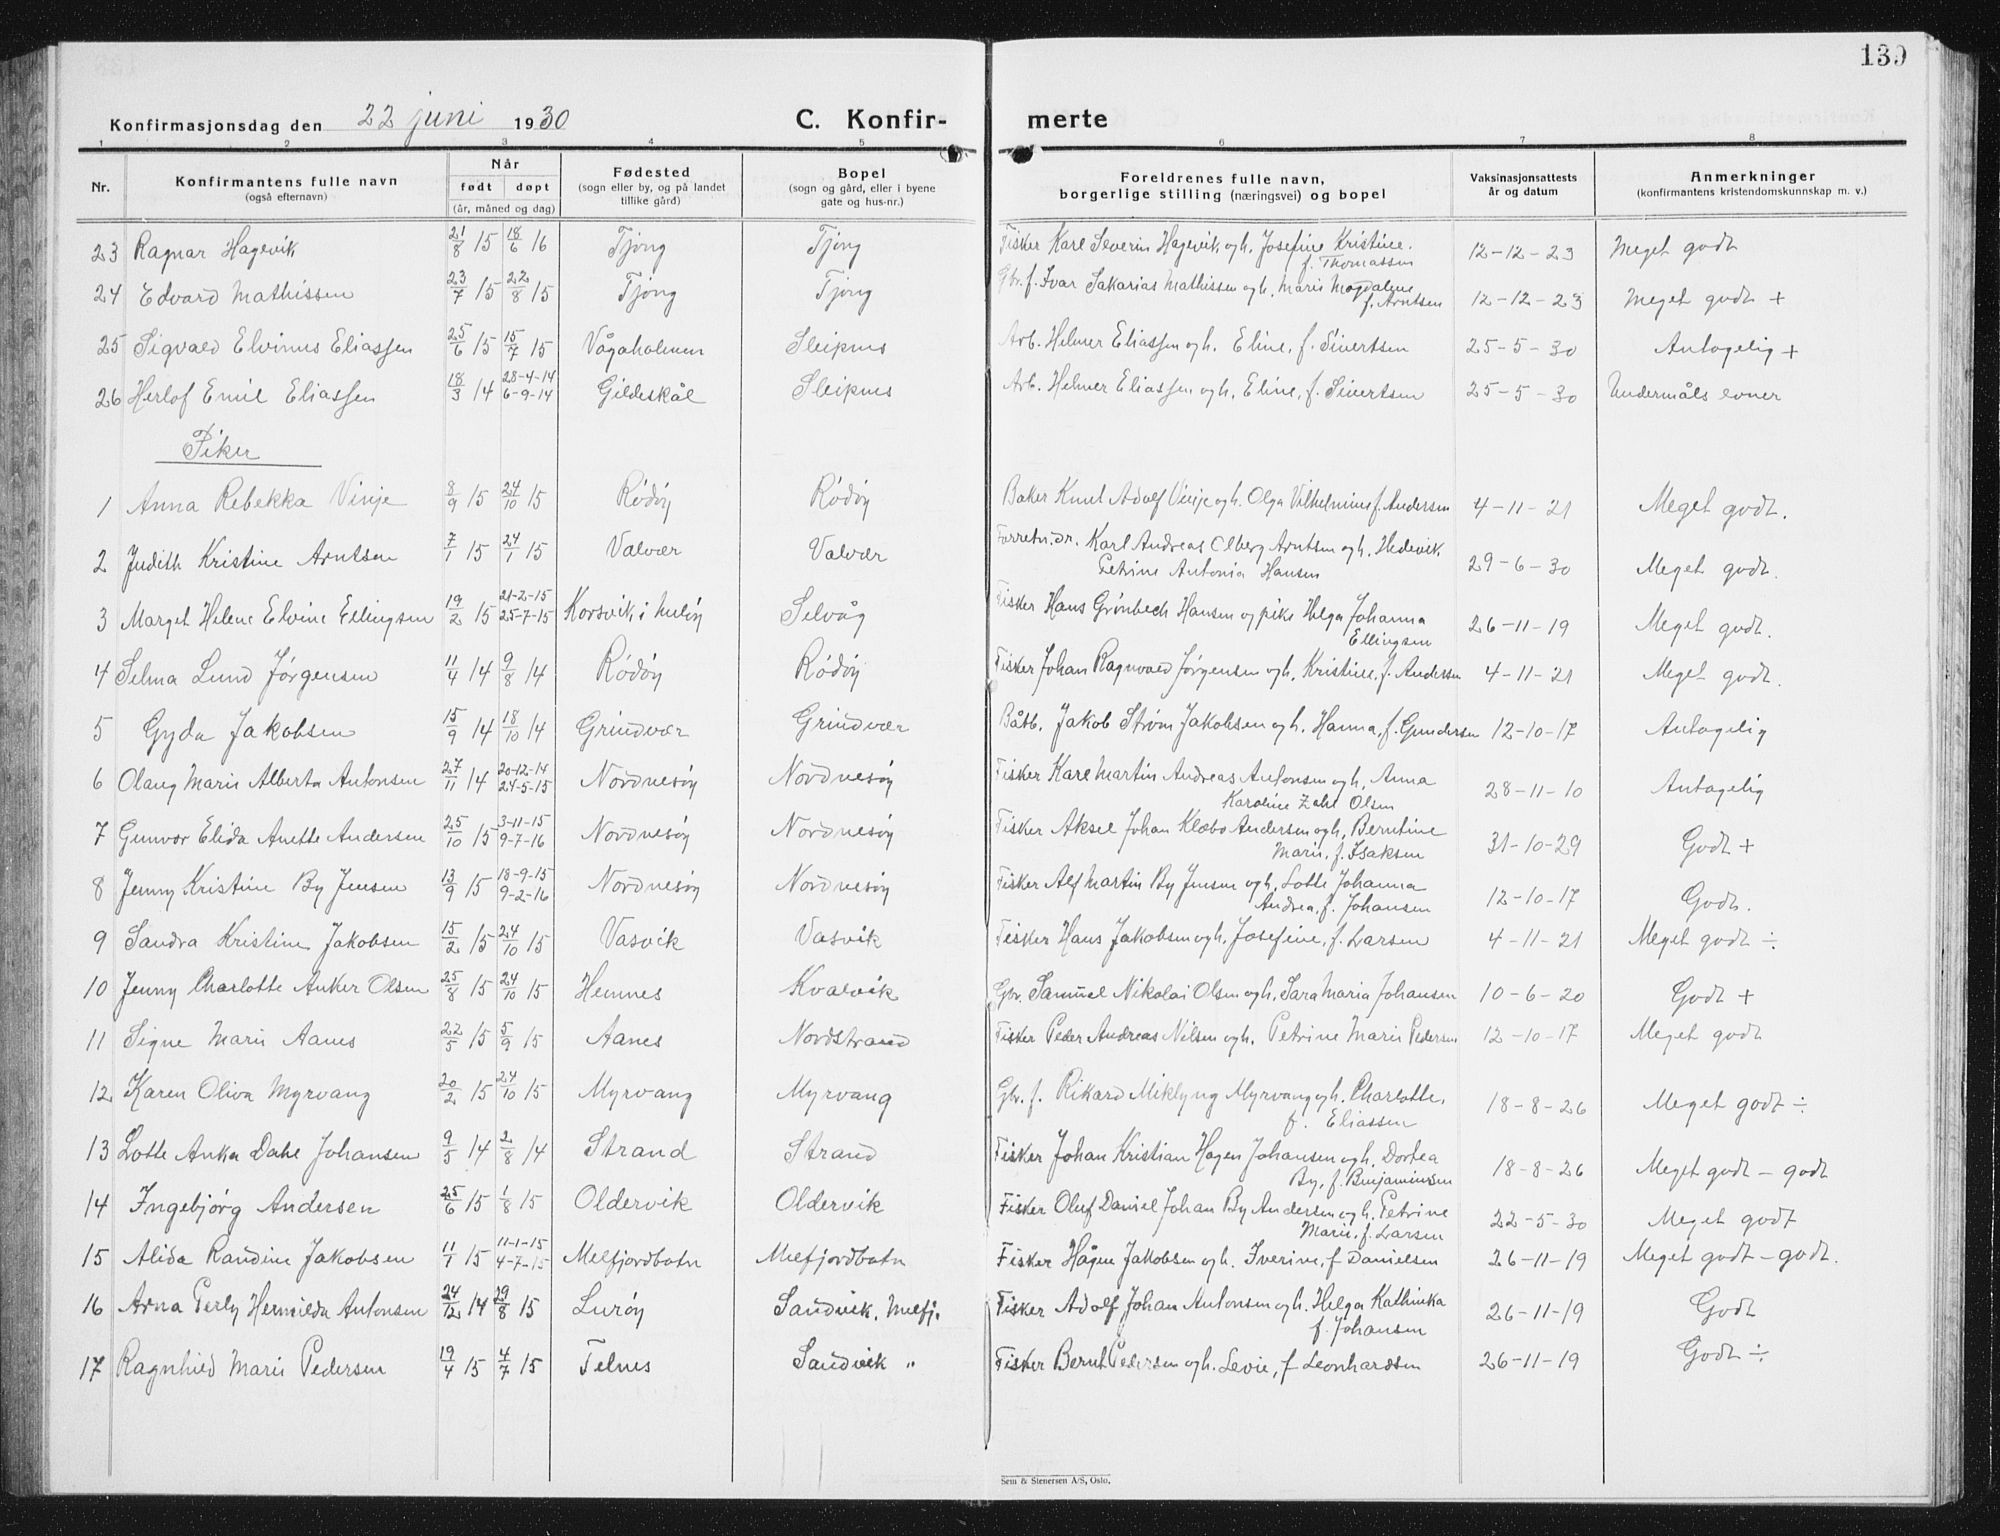 139
Konfirmasjonsdag den 22 juni 1930
C. Konfirmerte
1 2 3 4 5 6 7 8
Nr. | Konfirmantens fulle navn (også efternavn) | Når født døpt (år, måned og dag) | Fødested (sogn eller by, og på landet tillike gård) | Bopel (sogn og gård, eller i byene gate og hus-nr.) | Foreldrenes fulle navn, borgerlige stilling (næringsvei) og bopel | Vaksinasjonsattests år og datum | Anmerkninger (konfirmantens kristendomskunnskap m. v.)
23 Ragnar Hagevik 21/8 15 18/6 16 Tjong Tjong Fisker Karl Severin Hagevik og h. Josefine Kristine. f. Thomassen 12-12-23 Meget godt
24 Edvard Mathissen 23/7 15 22/8 15 Tjong Tjong Gbr. f. Ivar Sakarias Mathissen og h. Marie Magdalene f. Arntsen 12-12-23 Meget godt +
25 Sigvald Elvinus Eliassen 25/6 15 15/7 15 Vågaholmen Sleipnes Arb. Helmer Eliassen og h. Eline, f. Sivertsen 25-5-30 Antagelig +
26 Herlof Emil Eliassen 18/3 14 28-4-14 6-9-14 Gildeskål Sleipnes Arb. Helmer Eliassen og h. Eline, f. Sivertsen 25-5-30 Undermåls evner
Piker
1 Anna Rebekka Vinje 8/9 15 24/10 15 Rödöy Rödöy Baker Knut Adolf Vinje og h. Olga Vilhelmine f. Andersen 4-11-21 Meget godt.
2 Judith Kristine Arntsen 7/1 15 24/1 15 Valvær Valvær Forretn.dr. Karl Andreas Olberg Arntsen og h. Hedevik Petrine Antonia Hansen 29-6-30 Meget godt.
3 Marget Helene Elvine Ellingsen 19/2 15 21-2-15 25-7-15 Korsvik i Selvåg Fisker Hans Grönbech Hansen og pike Helga Johanna Ellingsen 26-11-19 Meget godt.
4 Selma Lund Jørgensen 11/4 14 9/8 14 Rödöy Rödöy Fisker Johan Ragnvald Jørgensen og h. Kristine, f. Andersen 4-11-21 Meget godt.
5 Gyda Jakobsen 15/9 14 18/10 14 Grindvær Grindvær Båtb. Jakob Strøm Jakobsen og h. Hanna, f. Gundersen 12-10-17 Antagelig
6 Olaug Marie Alberta Antonsen 27/11 14 20-12-14 24-5-15 Nordnesöy Nordnesöy Fisker Karl Martin Andreas Antonsen og h. Anna Karoline Zahl Olsen 28-11-10 Antagelig
7 Gunvor Elida Anette Andersen 25/10 15 3-11-15 9-7-16 Nordnesöy Nordnesöy Fisker Aksel Johan Klæbo Andersen og h. Berntine Marie, f. Isaksen 31-10-29 Godt +
8 Jenny Kristine By Jensen 13/9 15 18-9-15 9-2-16 Nordnesöy Nordnesöy Fisker Alf Martin By Jensen og h. Lotte Johanna Andrea, f. Johansen 12-10-17 Godt.
9 Sandra Kristine Jakobsen 15/2 15 24/10 15 Vasvik Vasvik Fisker Hans Jakobsen og h. Josefine, f. Larsen 4-11-21 Meget godt ÷
10 Jenny Charlotte Anker Olsen 25/8 15 24/10 15 Hemnes Kvalvik Gbr. Samuel Nikolai Olsen og h. Sara Maria Johansen 10-6-20 Godt +
11 Signe Marie Aanes 22/5 15 5/9 15 Aanes Nordstrand Fisker Peder Andreas Nilsen og h. Petrine Marie Pedersen 12-10-17 Meget godt
12 Karen Oliva Myrvang 20/2 15 24/10 15 Myrvang Myrvang Gbr. f. Rikard Miklyng Myrvang og h. Charlotte, f. Eliassen 18-8-26 Meget godt ÷
13 Lotte Anka Dahl Johansen 9/5 14 2/8 14 Strand Strand Fisker Johan Kristian Hagen Johansen og h. Dortea By, f. Benjaminsen 18-8-26 Meget godt - godt
14 Ingebjörg Andersen 25/6 15 1/8 15 Oldervik Oldervik Fisker Oluf Daniel Johan By Andersen og h. Petrine Marie, f. Larsen 22-5-30 Meget godt
15 Alida Randine Jakobsen 11/1 15 11-1-15 4-7-15 Melfjordbotn Melfjordbotn Fisker Hågen Jakobsen og h. Iverine, f Danielsen 26-11-19 Meget godt - godt.
16 Arna Perly Hermilda Antonsen 24/12 14 29/8 15 Luröy Sandvik, Melfj. Fisker Adolf Johan Antonsen og h. Helga Kathinka f. Johansen 26-11-19 Godt
17 Ragnhild Marie Pedersen 19/4 15 4/7 15 Telnes Sandvik " Fisker Bernt Pedersen og h. Levie, f Leonhardsen 26-11-19 Godt ÷
Sem & Stenersen A/S, Oslo.